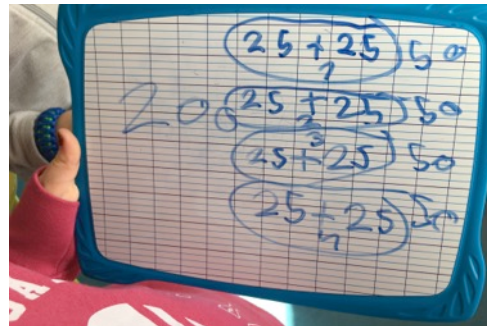 25 + 25 50
1
200 25 + 25 50
2
3
25 + 25 50
25 + 25 50
4